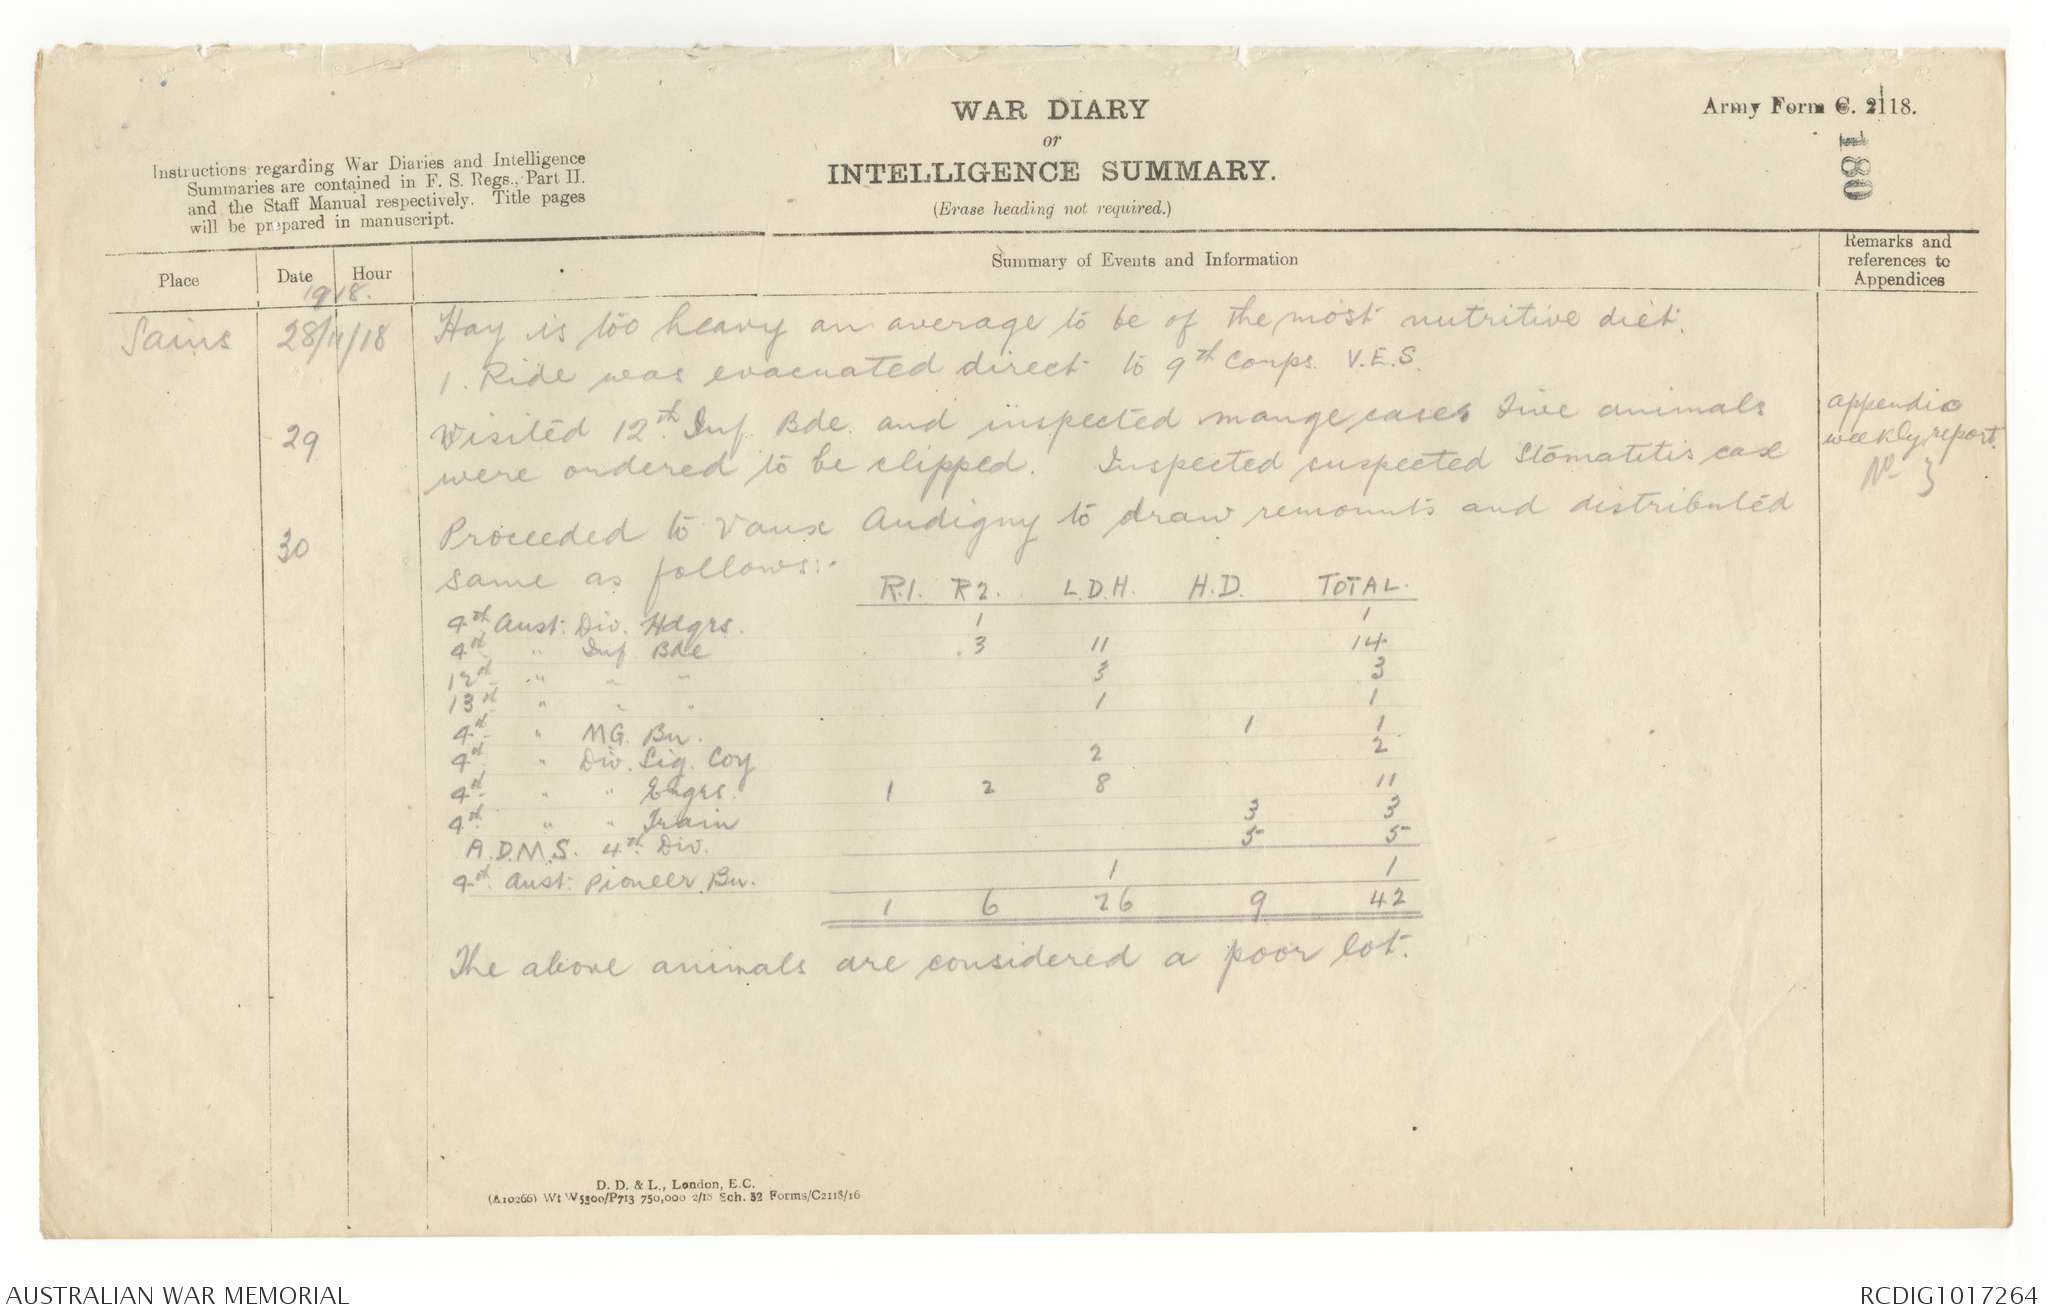 WAR DIARY
or
INTELLIGENCE SUMMARY.
(Erase heading not required.)
Army Form C. 2118.
180
Instructions regarding War Diaries and Intelligence
Summaries are contained in F. S. Regs., Part II.
and the Staff Manual respectively. Title pages
will be prepared in manuscript.
Place Date Hour Summary of Events and Information Remarks and references to Appendices
1918.
Sains 28/11/18 Hay is too heavy an average to be of the most nutritive diet.
1. Ride was evacuated direct to 9th Corps. V.E.S.
29 Visited 12th Inf Bde. and inspected mange cases. Five animals
were ordered to be clipped. Inspected suspected Stomatetis case
appendix
weekly report.
No 3
30 Proceeded to Vaux Andigny to draw remounts and distributed
same as follows:-
R.1. R2. L.D.H. H.D. TOTAL.
4th Aust. Div. Hdqrs. 1 1
4th " Inf Bde 3 11 14
12th " " " 3 3
13th " " " 1 1
4th " M.G. Bn. 1 1
4th " Div. Sig. Coy 2 2
4th " " Engrs. 1 2 8 11
4th " " Train 3 3
A.D.M.S. 4th Div. 5 5
4th Aust. Pioneer Bn. 1 1
1 6 26 9 42
The above animals are considered a poor lot.
D. D. & L., London, E.C.
(A10266) Wt W5300/P713 750,000 2/18 Sch. 52 Forms/C2118/16
AUSTRALIAN WAR MEMORIAL
RCDIG1017264